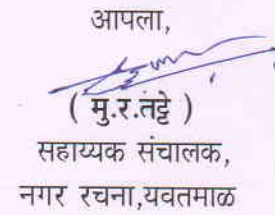 आपला,
( मु.र.तट्टे )
सहाय्यक संचालक,
नगर रचना,यवतमाळ